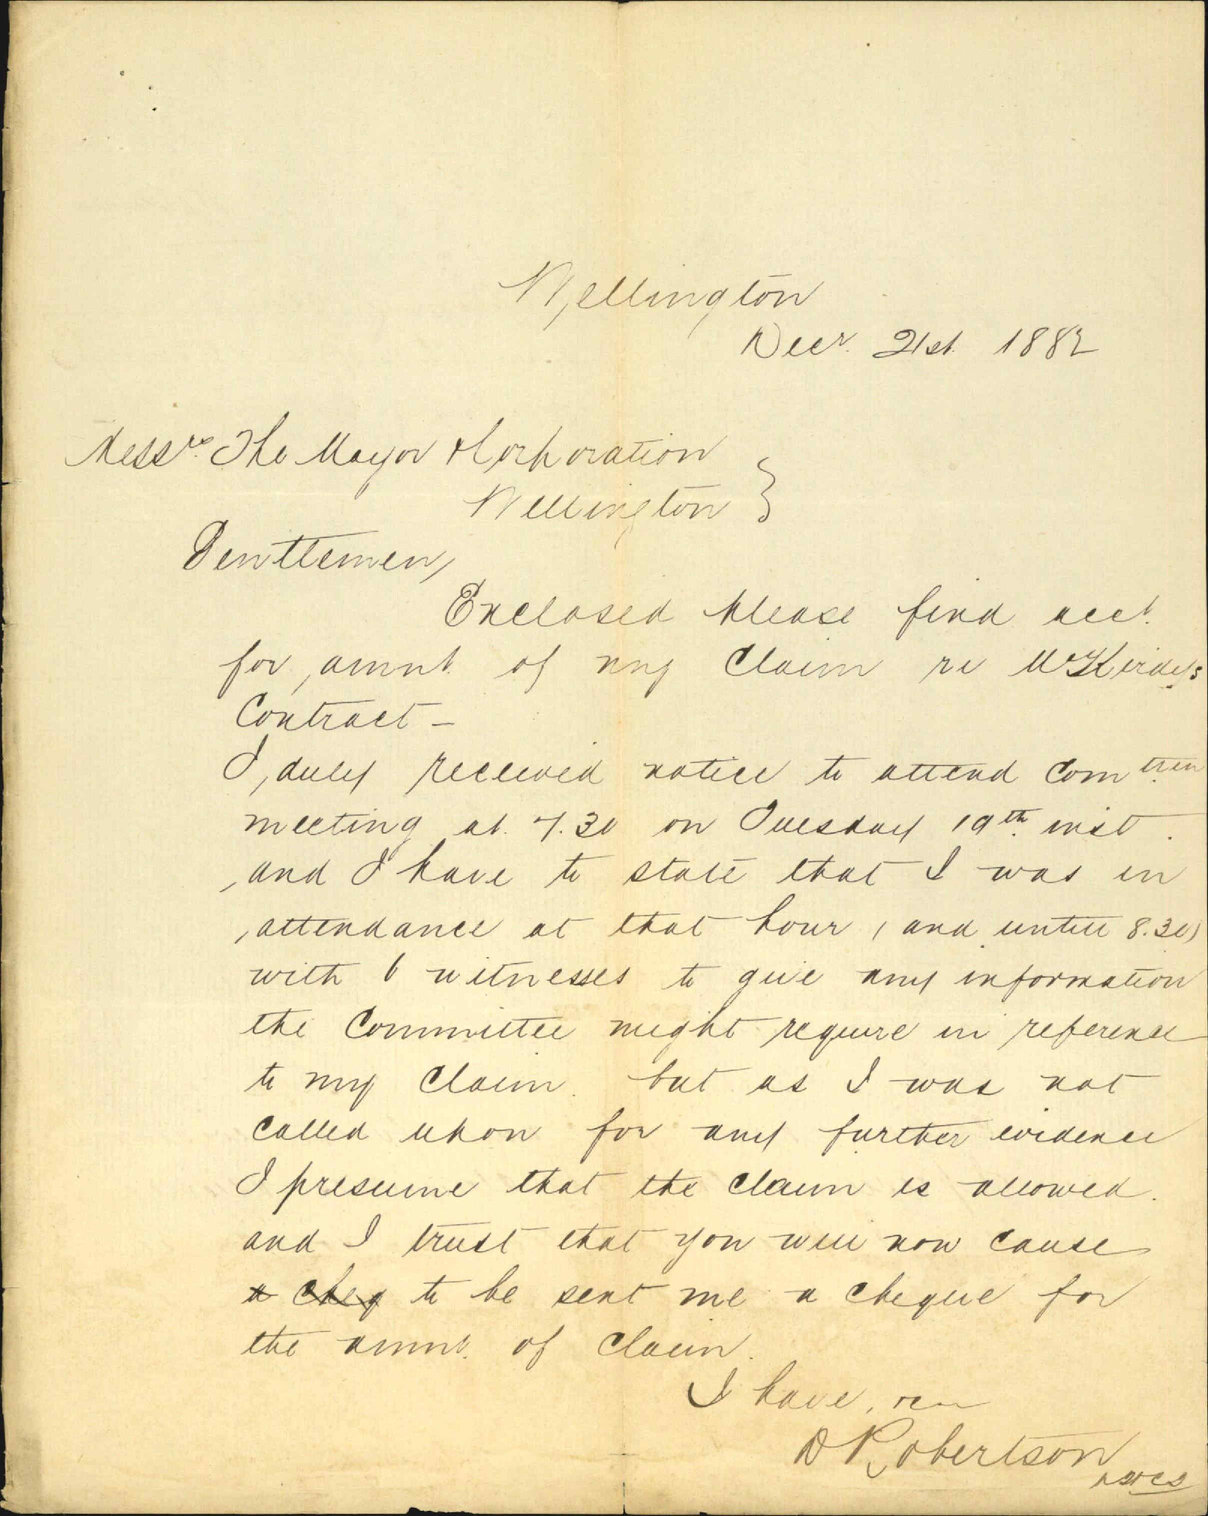 Wellington
Decr. 21st. 1882
Messrs. The Mayor & Corporation
Wellington }
Genttemen,
Enclosed please find acct.
for amnt. of my Claim re McKirdys
Contract —
I, duly received notice to attend Comttee
meeting at. 7.30 on Tuesday 19th. inst.
and I have to state that I was in
attendance at that hour (and untill 8.30)
with 6 witnesses to give any information
the Committee might require in reference
to my Claim. but as I was not
Called upon for any further evidence
I presume that the Claim is allowed.
and I trust that you will now cause
a cheq to be sent me a cheque for
the amnt. of Claim.
I have,
D Robertson